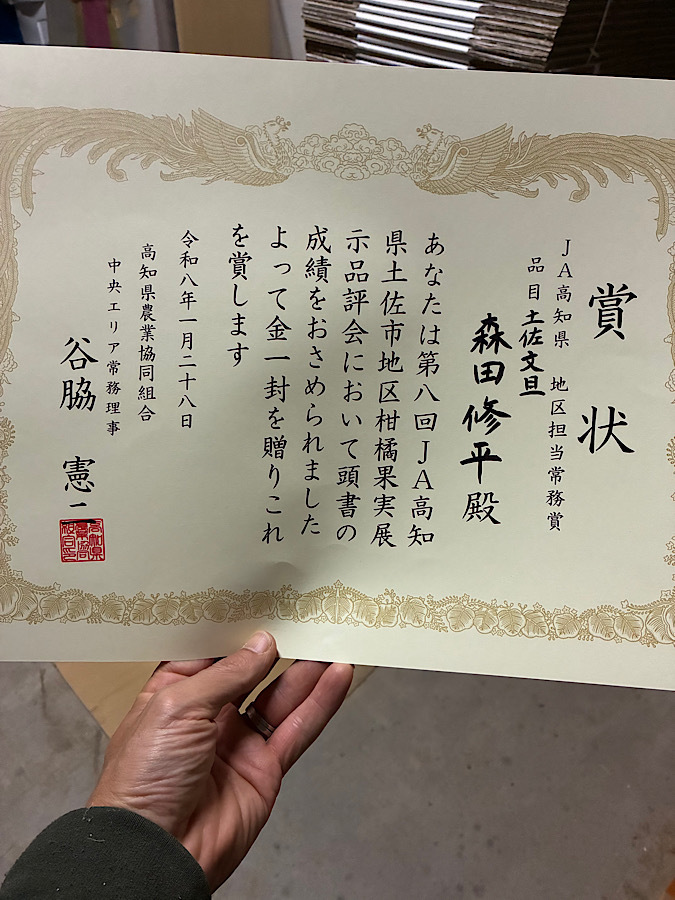 賞状
JA高知県 地区担当常務賞
品目 土佐文旦
森田修平殿
あなたは第八回JA高知
県土佐市地区柑橘果実展
示品評会において頭書の
成績をおさめられました
よって金一封を贈りこれ
を賞します
令和八年一月二十八日
高知県農業協同組合
中央エリア常務理事
谷脇 憲二